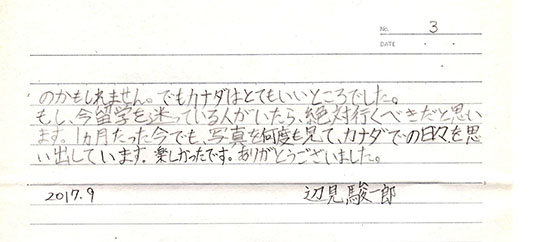 No. 3
DATE ・ ・
のかもしれません。でもカナダはとてもいいところでした。
もし、今留学を迷っている人がいたら、絶対行くべきだと思い
ます。1ヵ月たった今でも、写真を何度も見て、カナダでの日々を思
い出しています。楽しかったです。ありがとうございました。
2017.9 辺見駿一郎